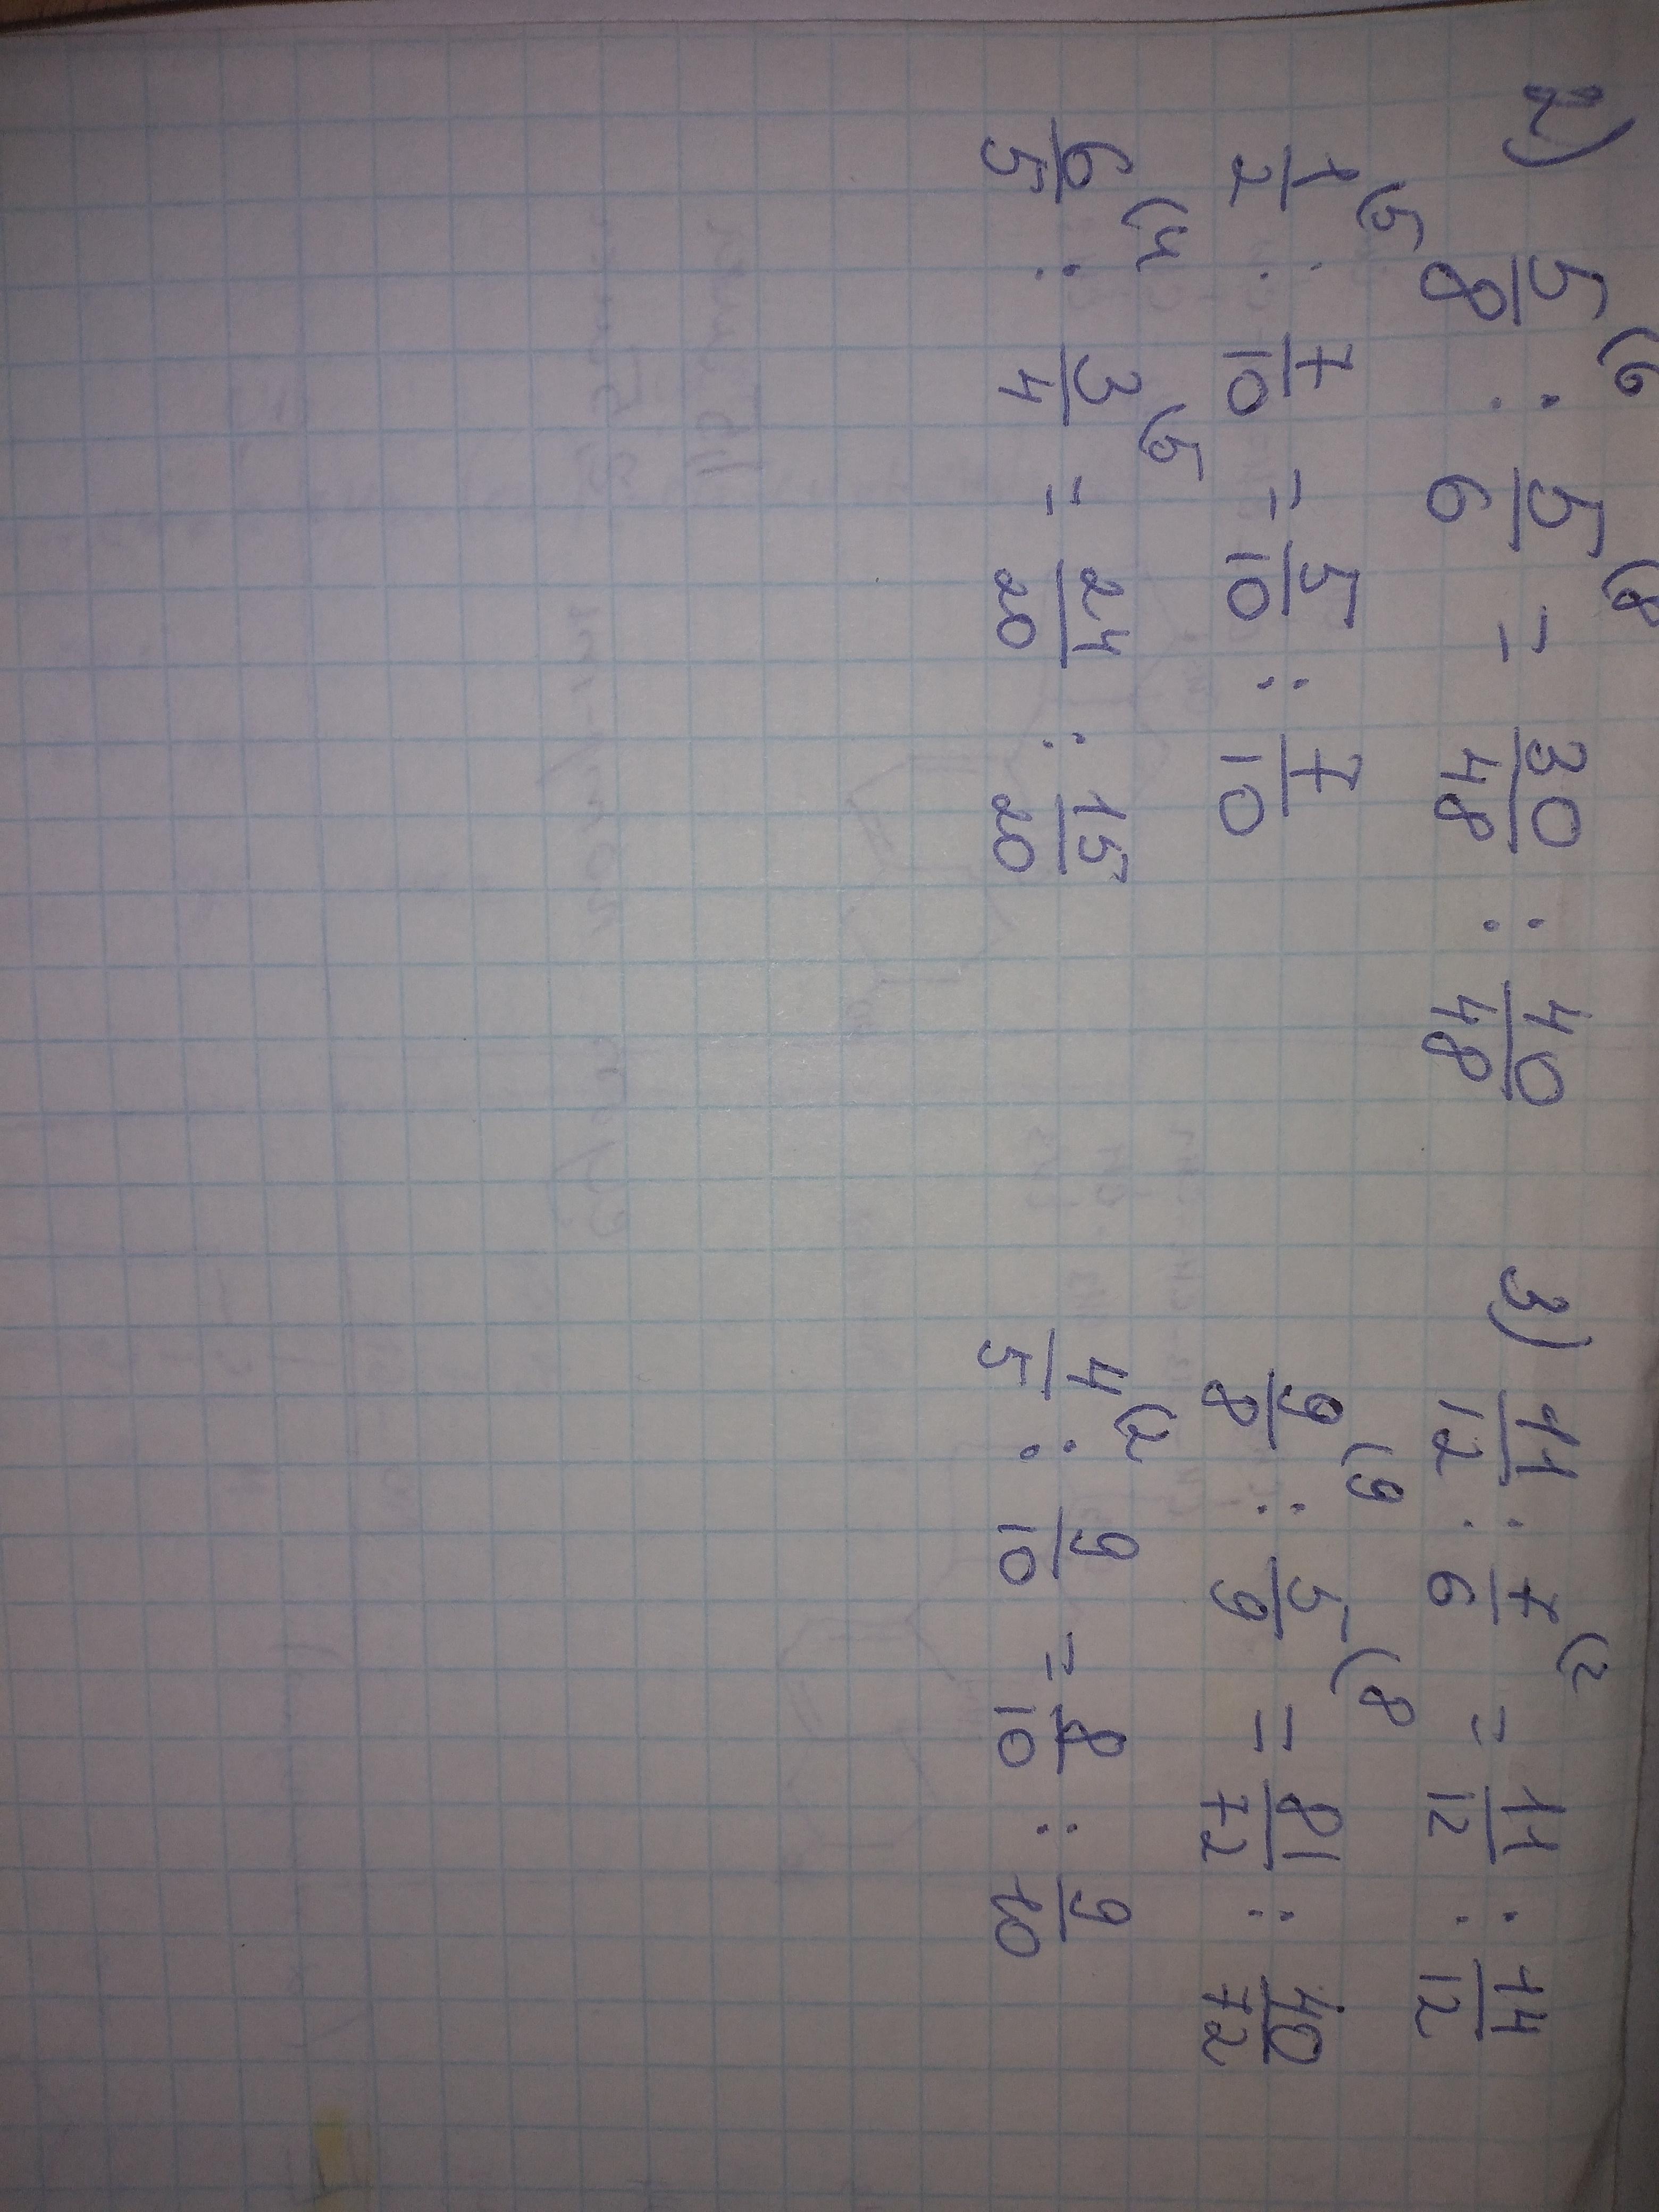 2) 5/8 (6 : 5/6 (8 = 30/48 : 40/48
1/2 (5 : 7/10 = 5/10 : 7/10
6/5 (4 : 3/4 (5 = 24/20 : 15/20
3) 11/12 : 7/6 (2 = 11/12 : 14/12
9/8 (9 : 5/9 (8 = 81/72 : 40/72
4/5 (2 : 9/10 = 8/10 : 9/10